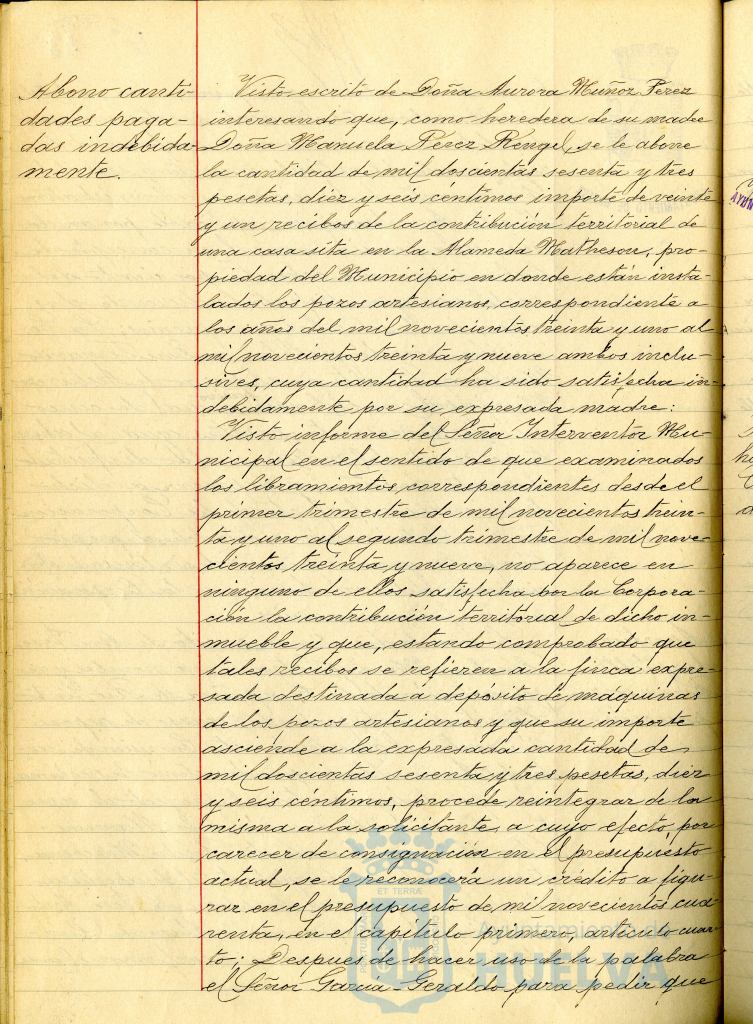 Abono canti-
dades paga-
das indebida-
mente.
Visto escrito de Doña Aurora Muñoz Perez
interesando que, como heredera de su madre
Doña Manuela Pérez Rengel, se le abone
la cantidad de mil doscientas sesenta y tres
pesetas, diez y seis céntimos importe de veinte
y un recibos de la contribución territorial de
una casa sita en la Alameda Matheson, pro-
piedad del Municipio en donde están insta-
lados los pozos artesianos, correspondiente a
los años del mil novecientos treinta y uno al
mil novecientos treinta y nueve ambos inclu-
sives, cuya cantidad ha sido satisfecha in-
debidamente por su expresada madre:
Visto informe del Señor Interventor Mu-
nicipal en el sentido de que examinados
los libramientos correspondientes desde el
primer trimestre de mil novecientos trein-
ta y uno al segundo trimestre de mil nove-
cientos treinta y nueve, no aparece en
ninguno de ellos satisfecha por la Corpora-
ción la contribución territorial de dicho in-
mueble y que, estando comprobado que
tales recibos se refieren a la finca expre-
sada destinada a depósito de máquinas
de los pozos artesianos y que su importe
asciende a la expresada cantidad de
mil doscientas sesenta y tres pesetas, diez
y seis céntimos, procede reintegrar de la
misma a la solicitante, a cuyo efecto, por
carecer de consignación en el presupuesto
actual, se le reconocería un crédito a figu-
rar en el presupuesto de mil novecientos cua-
renta, en el capítulo primero, artículo cuar-
to; Despues de hacer uso de la palabra
el Señor Garcia-Geraldo para pedir que
ET TERRA
HUELVA
AYUN